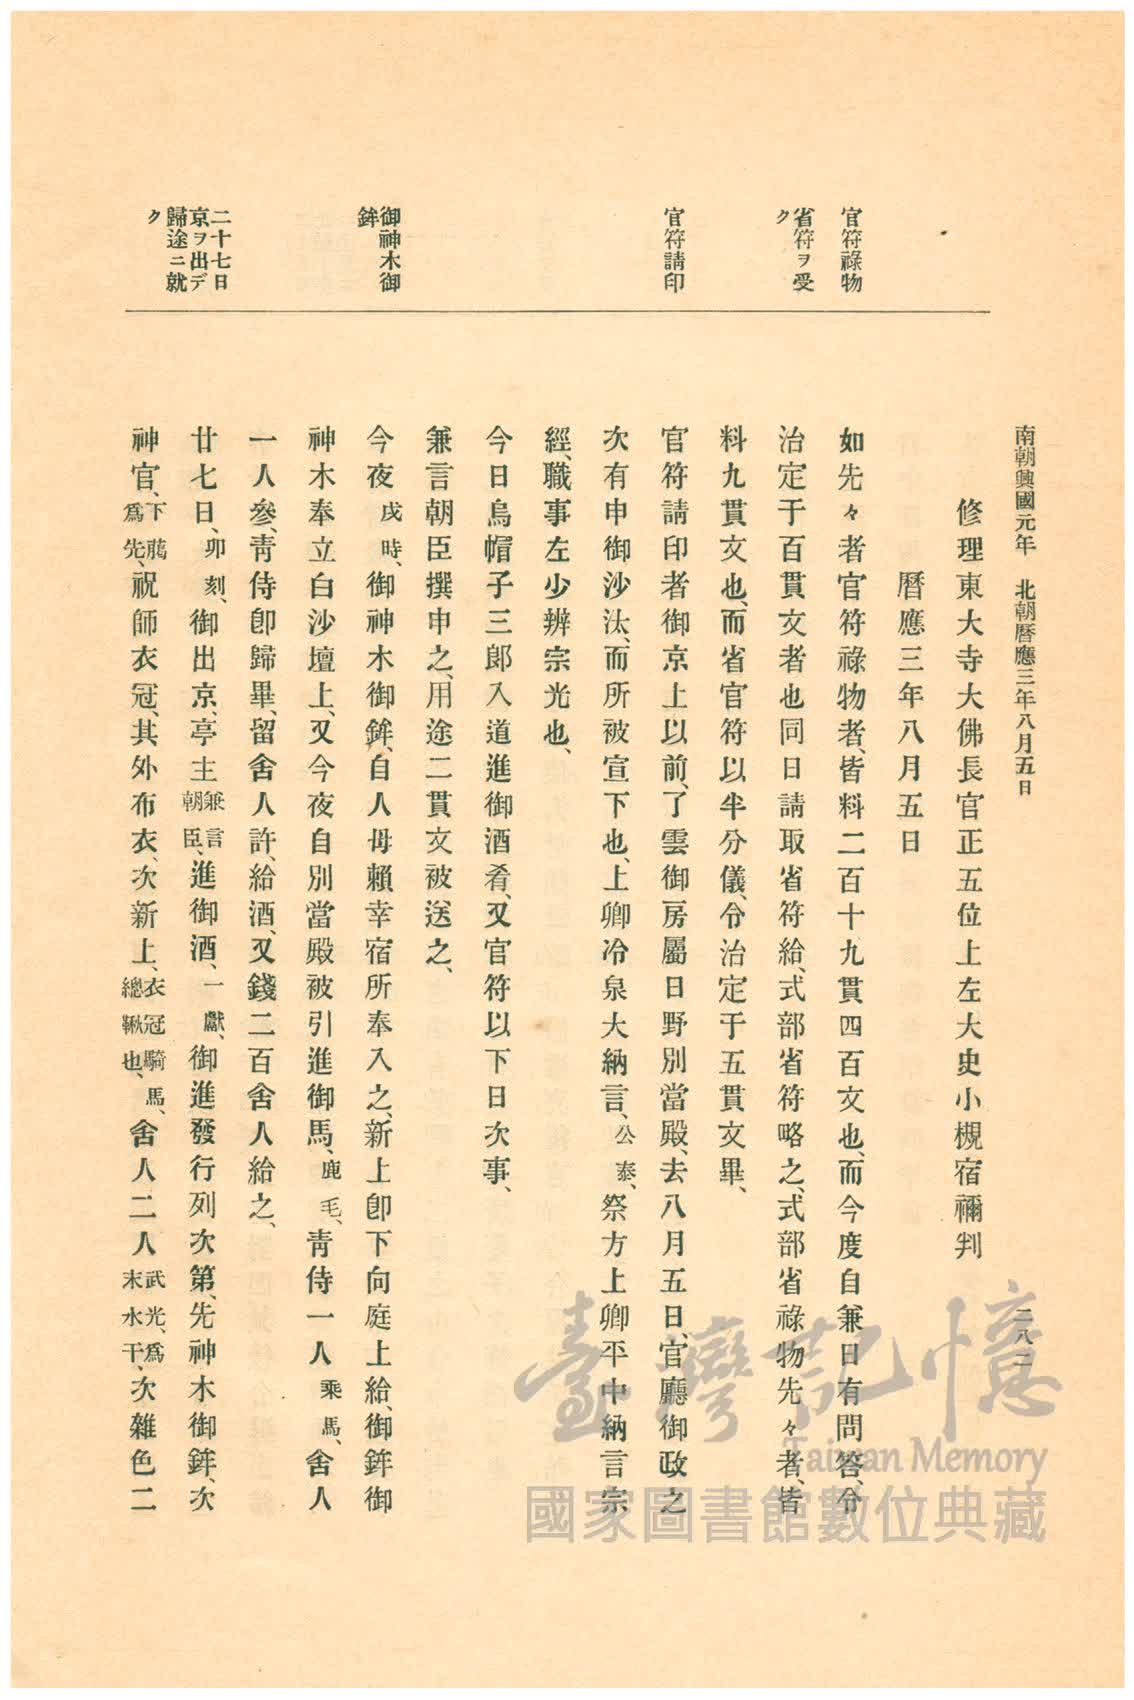 南朝興國元年 北朝曆應三年八月五日
二八二
官符祿物
省符ヲ受
ク
官符請印
御神木御
鉾
二十七日
京ヲ出デ
歸途ニ就
ク
修理東大寺大佛長官正五位上左大史小槻宿禰判
曆應三年八月五日
如先々者官符祿物者、皆料二百十九貫四百文也、而今度自兼日有問答、令
治定于百貫文者也同日請取省符給、式部省符略之、式部省祿物先々者、皆
料九貫文也、而省官符以半分儀、令治定于五貫文畢、
官符請印者御京上以前、了雲御房屬日野別當殿、去八月五日、官廳御政之
次有申御沙汰、而所被宣下也、上卿冷泉大納言、公泰、祭方上卿平中納言宗
經、職事左少辨宗光也、
今日烏帽子三郎入道進御酒肴、又官符以下日次事、
兼言朝臣撰申之、用途二貫文被送之、
今夜戌時、御神木御鉾、自人母賴幸宿所奉入之、新上卽下向庭上給、御鉾御
神木奉立白沙壇上、又今夜自別當殿被引進御馬、鹿毛、靑侍一人乘馬、舍人
一人參、靑侍卽歸畢、留舍人許、給酒、又錢二百舍人給之、
廿七日、卯刻、御出京、亭主兼言朝臣、進御酒、一獻、御進發行列次第、先神木御鉾、次
神官、下﨟爲先、祝師衣冠、其外布衣、次新上、衣冠騎馬、總鞦也、舍人二人武光、爲末水干、次雜色二
臺灣記憶
Taiwan Memory
國家圖書館數位典藏